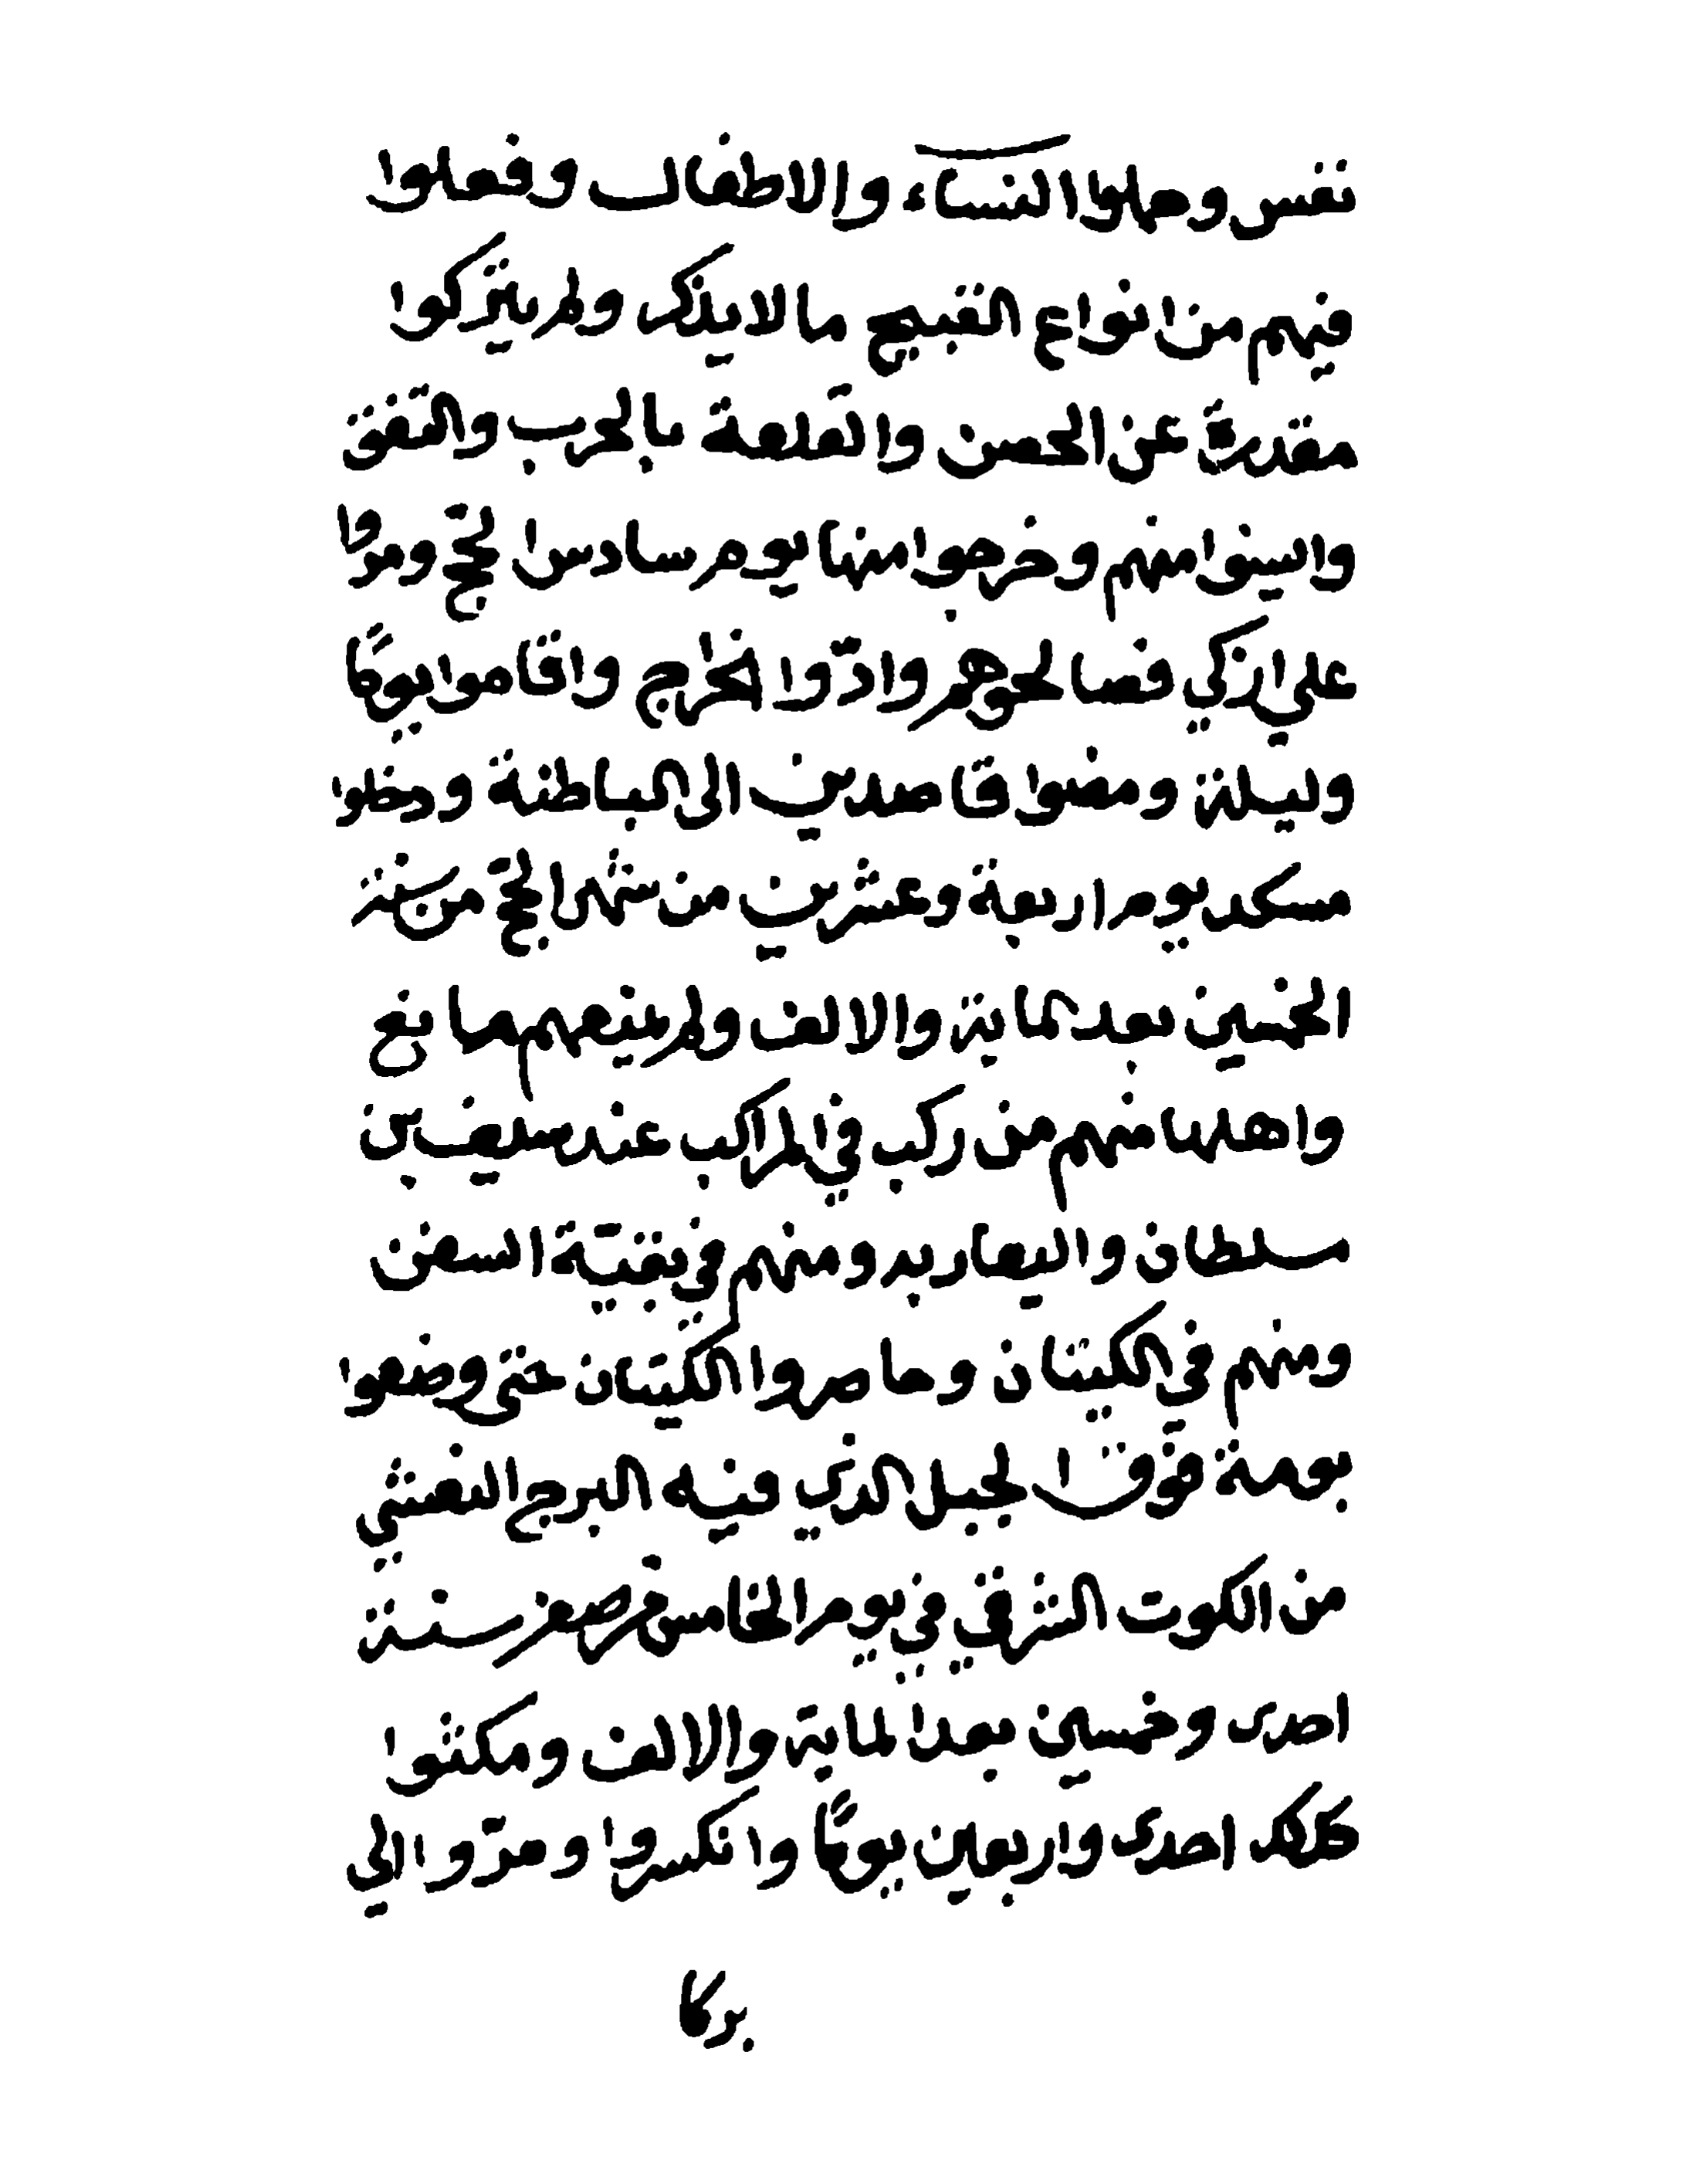 نفس وحملوا النساء والاطفال وفعلوا
فيهم من انواع القبيح ما لا يذكر ولم يتركوا
مقدرة عن الحصن والقلعة بالحرب والتفق
وايسوا منهم وخرجوا منها يوم سادس الحج ومروا
على ازكي فصالحوهم وادوا الخراج واقاموا يومًا
وليلة ومضوا قاصدين الى الباطنة ودخلوا
مسكد يوم اربعة وعشرين من شهر الحج من سنة
الخمسين بعد ماية والالف ولم يمنعهم مانع
واهلها منهم من ركب في المراكب عند سيف بن
سلطان واليعاربه ومنهم في بقيّة السفن
ومنهم في الكيتان وحاصروا الكيتان حتى وضعوا
بومة فوق الجبل الذي فيه البرج النعشي
من الكوت الشرقي في يوم الخامس من صفر سنة
احدى وخمسين بعد الماية والالف ومكثوا
كذلك احدى واربعين يومًا وانكسروا ومرّوا الي
بركا